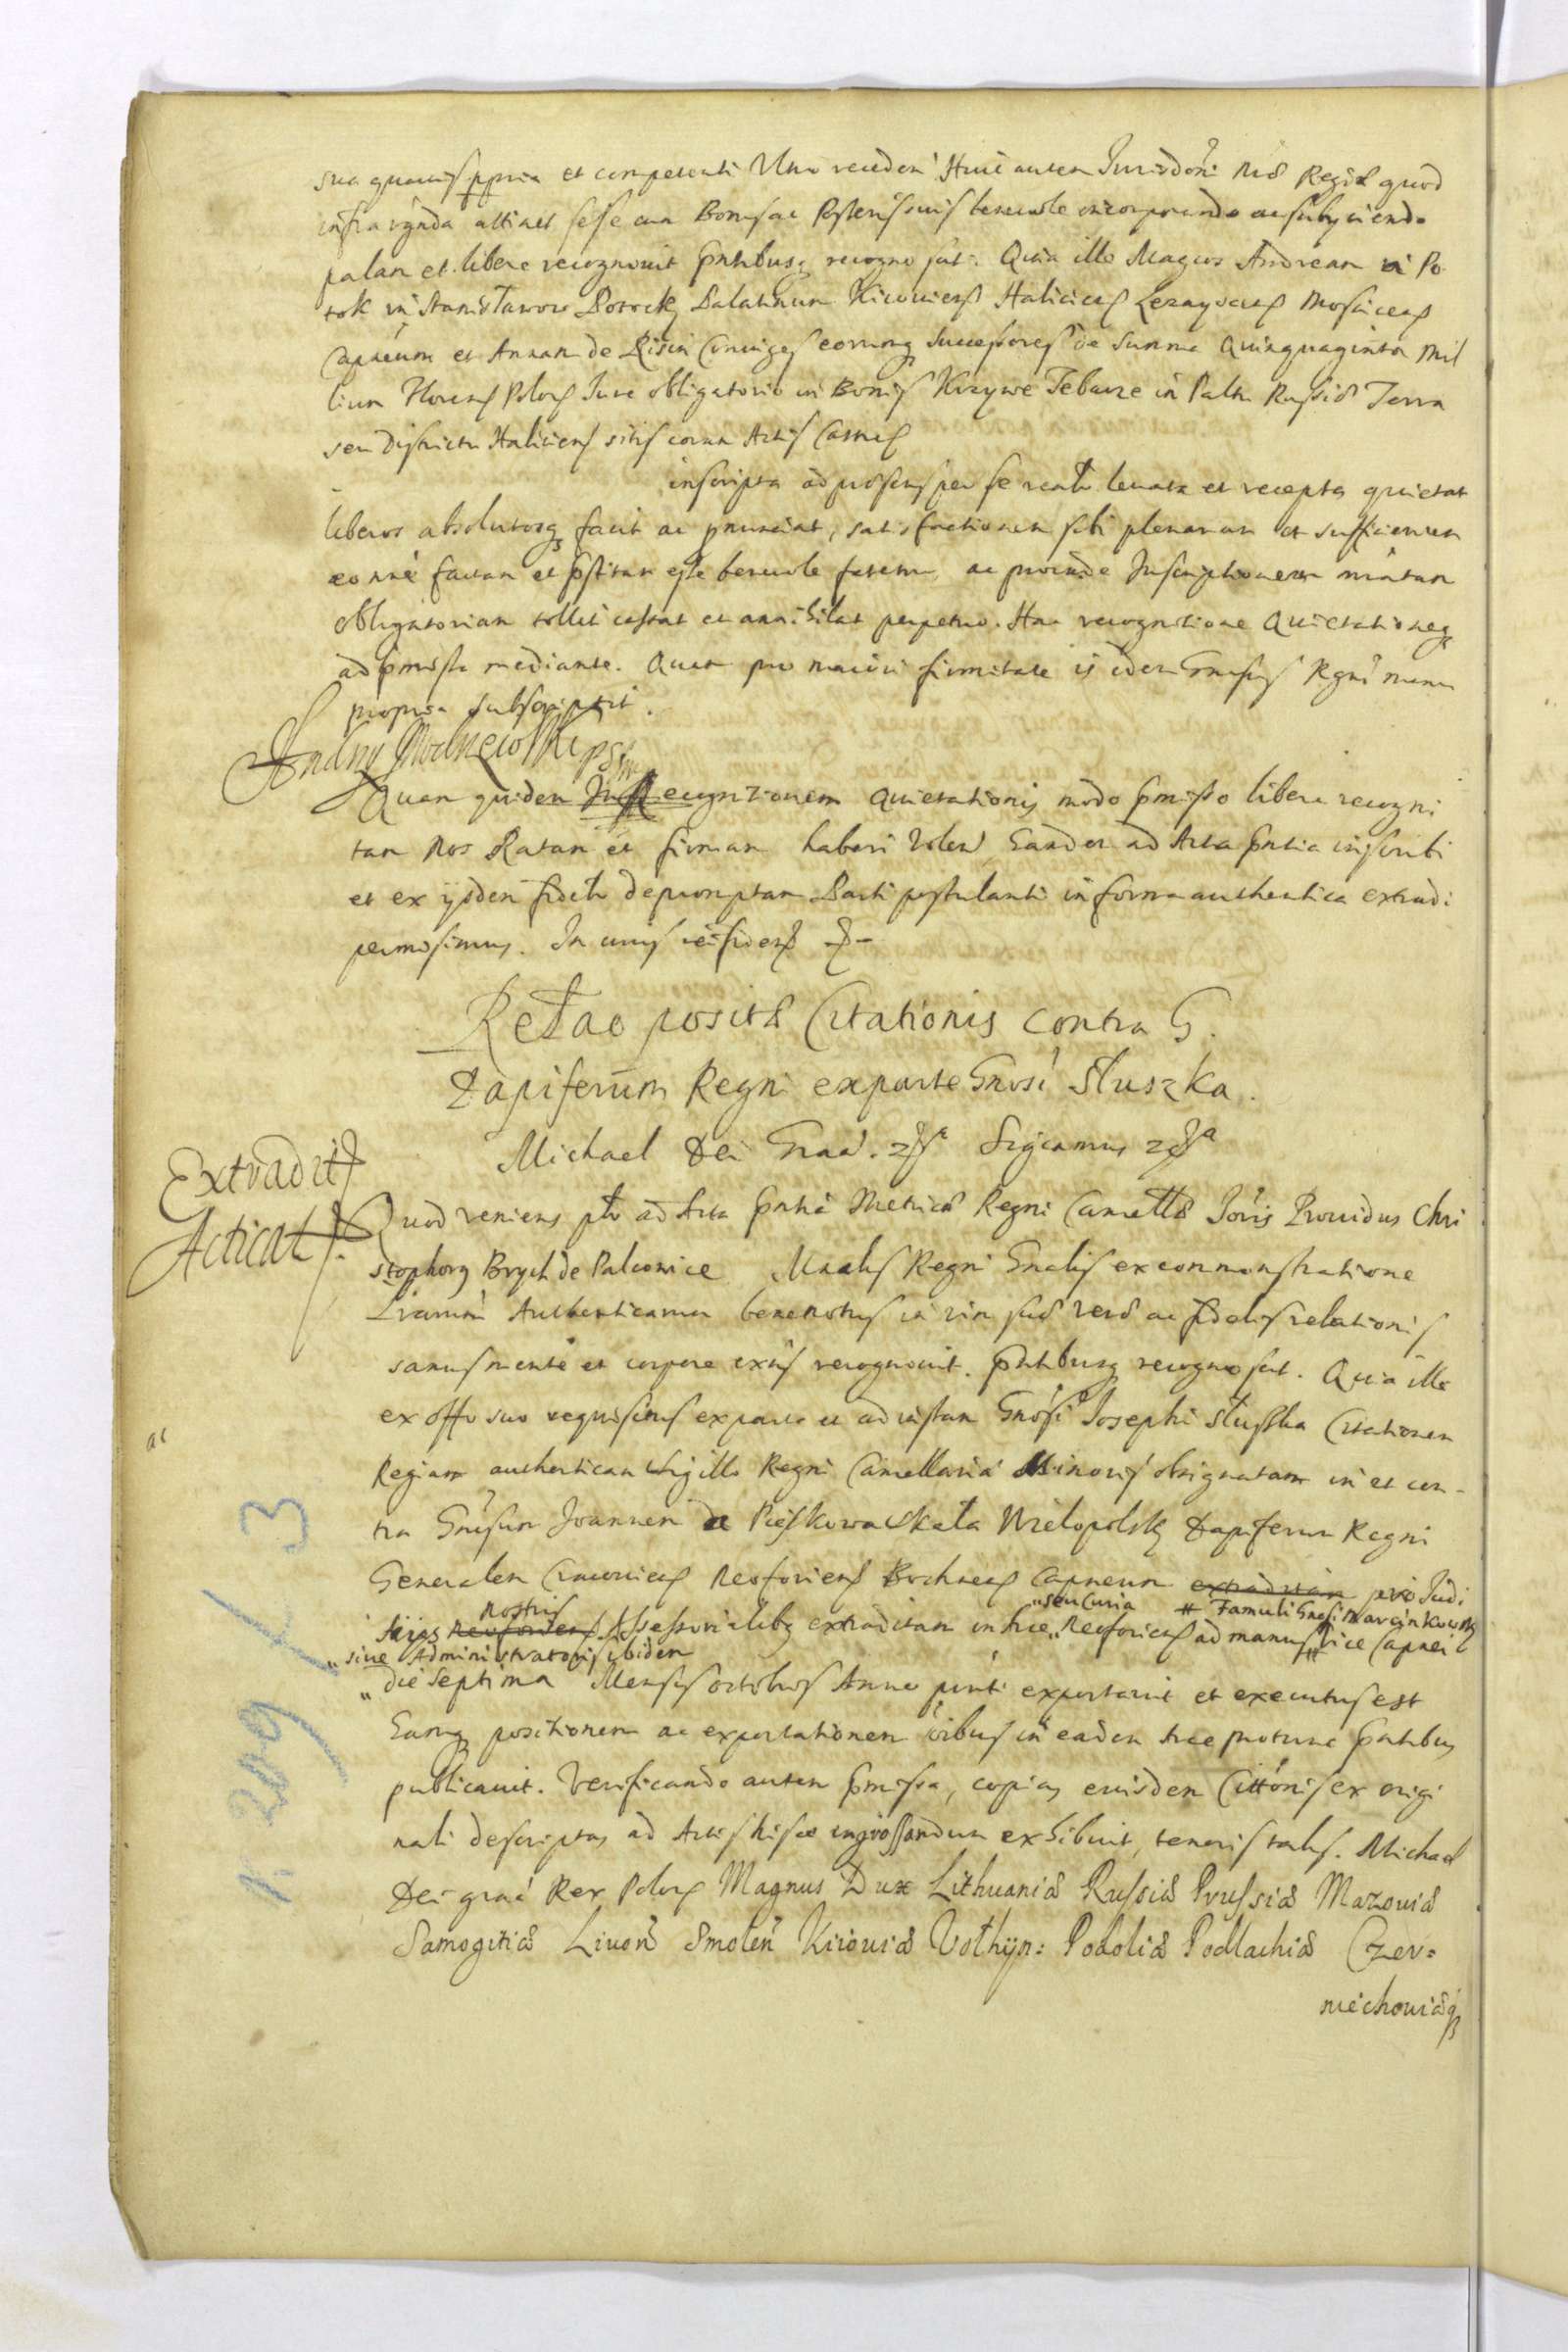 sua quavis ppria et competenti Huic autem Jurisdoni Regiæ quod
infra attinet sese cum Bonis ac Posteris suis benevole incorporando ac subijciendo
palam et libere recognovit Pntibusq recognoscit. Quia ille Magcos Andream in Po
tok in Stanisławow Potocky Palatinum Kijovien Halicien Lezayscen Moscicen
Capneum et Annam de Risin Coniuges eorumq Successores de Summa Quinquaginta Mil
lium Floren Polon Jure obligatorio in Bonis Krzywe Tebarze in Paltu Russiæ Terra
seu Districtu Halicien sitis coram Actis Castren
inscripta ad præsens per se realr levata et recepta quietat
liberos absolutosq facit ac pnunciat, satisfactionem sibi plenariam et sufficientem
eo nne factam et pstitam esse benevole fatetur, ac proinde Inscriptionem
obligatoriam tollit cassat et annihilat perpetuo. Hac recognitione Quietationeq
ad pmissa mediante. Quam pro maiori firmitate is idem Gnosus Rgns manu
propria subscripsit.
Quam quidem Recogntionem Quietationis modo pmisso libere recogni
tam Nos Ratam et firmam haberi volen Eandem ad Acta pntia inscribi
et ex ijsdem fidelr depromptam Parti postulanti in forma authentica extradi
permisimus. In cuius rei fidem
Relao positæ Citationis contra G.
Dapiferum Regni ex parte Gnosi Słuszka.
Michael Dei Graa. Significamus
Extradit
Acticat
Quod veniens ptr ad Acta pntia Metricæ Regni Cancellæ Joris Providus Chri
stophorg Brych de Palconice Mralis Regni Gnalis ex conmonstratione
Lrarum Authenticarum benenotus in vim suæ veræ ac fidelis relationis
sanus mente et corpore exns recognovit. Pntibusq recognoscit. Quia ille
ex offo suo requisitus ex parte et ad instan Gnosi Josephi Słuszka Citationem
Regiam authenticam Sigillo Regni Cancellaria Minoris obsignatam in et con-
tra Gnosum Joannem de Pieskowa Skała Wielopolsky Dapiferum Regni
Generalem Cracovien Neoforien Bochnen Capneum extraditam pro Judi
seu Curia # Famuli Gnosi Marcinkowsky
Nostris
tijs Neoforien Assessorialibq extraditam in Arce Neoforien ad manus vice Capnei
sive Administratoris ibidem
die Septima Mensis Octobris Anno pnti exportavit et executus est
Eamq positionem ac exportationem oibus in eadem Arce protunc Pntibus
publicavit. Verificando autem pmissa, copiam eiusdem Cittonis ex origi
nali descriptam ad Actis hisce ingrossandum exhibuit, tenoris talis. Michael
Dei graa Rex Polon Magnus Dux Lithuaniæ Russiæ Prussiæ Mazoviæ
Samogitiæ Livon Smolen Kijoviæ Vołhyn: Podoliæ Podlachiæ Czer=
niechoviæq
ac